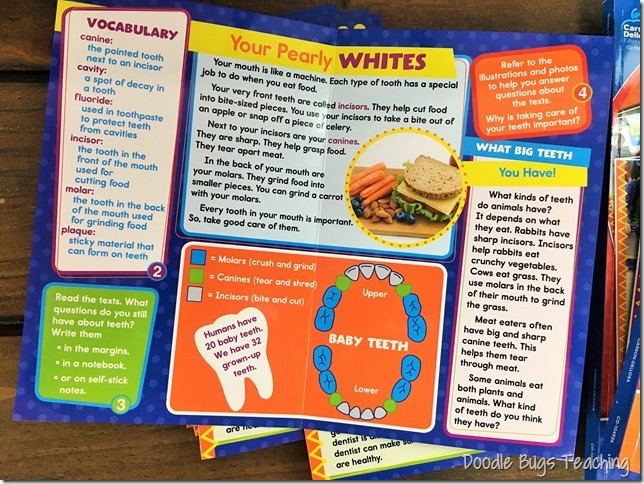 VOCABULARY
canine:
the pointed tooth
next to an incisor
cavity:
a spot of decay in
a tooth
fluoride:
used in toothpaste
to protect teeth
from cavities
incisor:
the tooth in the
front of the mouth
used for
cutting food
molar:
the tooth in the back
of the mouth used
for grinding food
plaque:
sticky material that
can form on teeth
2
Read the texts. What
questions do you still
have about teeth?
Write them
• in the margins.
• in a notebook.
• or on self-stick
notes.
3
Your Pearly WHITES
Your mouth is like a machine. Each type of tooth has a special
job to do when you eat food.
Your very front teeth are called incisors. They help cut food
into bite-sized pieces. You use your incisors to take a bite out of
an apple or snap off a piece of celery.
Next to your incisors are your canines.
They are sharp. They help grasp food.
They tear apart meat.
In the back of your mouth are
your molars. They grind food into
smaller pieces. You can grind a carrot
with your molars.
Every tooth in your mouth is important.
So, take good care of them.
= Molars (crush and grind)
= Canines (tear and shred)
= Incisors (bite and cut)
Humans have
20 baby teeth.
We have 32
grown-up
teeth.
Upper
BABY TEETH
Lower
Refer to the
illustrations and photos
to help you answer
questions about
the texts.
Why is taking care of
your teeth important?
4
WHAT BIG TEETH
You Have!
What kinds of teeth
do animals have?
It depends on what
they eat. Rabbits have
sharp incisors. Incisors
help rabbits eat
crunchy vegetables.
Cows eat grass. They
use molars in the back
of their mouth to grind
the grass.
Meat eaters often
have big and sharp
canine teeth. This
helps them tear
through meat.
Some animals eat
both plants and
animals. What kind
of teeth do you think
they have?
dentist is
dentist can make
are healthy.
Doodle Bugs Teaching